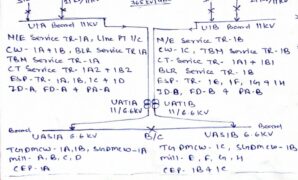 U1A Board 11KV
U1B Board 11KV
M/E Service TR-1A, Line PT I/C
CW-1A+1B, BLR Service TR 1A
TBM Service TR-1A
CT Service TR-1A2 + 1B2
ESP-TR-1A, 1B, 1C & 1D
ID-A, FD-A & PA-A
M/E Service TR-1B
CW-1C, TBM Service TR-1B
CT-Service TR-1A1 + 1B1
BLR Service TR-1B
ESP-TR-1E, 1F, 1G & 1H
ID-B, FD-B & PA-B
UAT1A
11/6.6KV
UAT1B
11/6.6KV
Board
Board
UAS1A 6.6KV
B/C
UAS1B 6.6KV
TGDMCW-1A, 1B, SGDMCW-1A
Mill-A, B, C, D
CEP-1A
TGDMCW-1C, SGDMCW-1B
Mill-E, F, G, H
CEP-1B & 1C